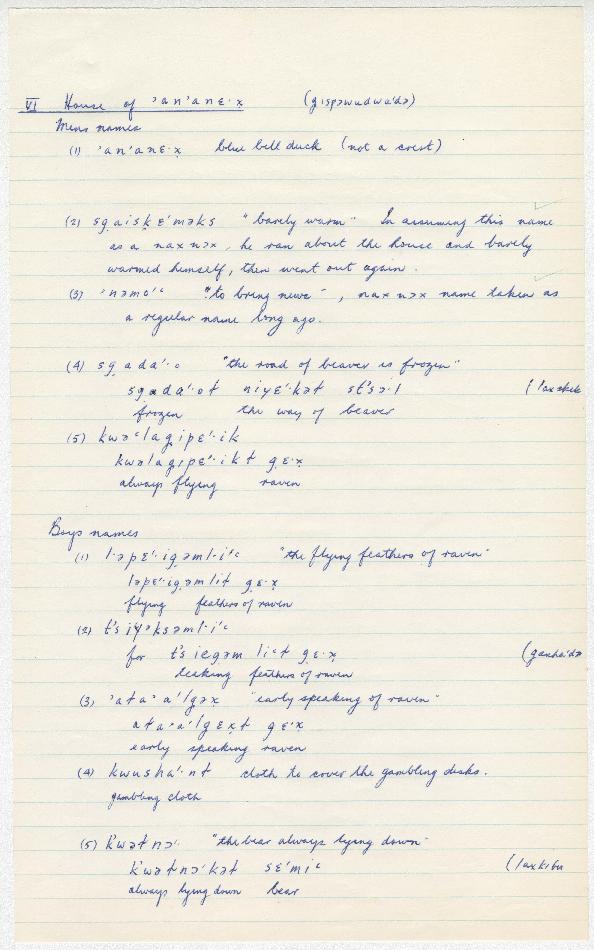 VI House of ʾanʾanɛ·x̣ (gispəwudwaʹdə)
Mens names
(1) ʾanʾanɛ·x̣ blue bell duck (not a crest)
(2) sg̣aisḳɛʹməks "barely warm" In assuming this name
as a naxnɔx, he ran about the house and barely
warmed himself, then went out again.
(3) ʾnəmoʹʿ "to bring news", naxnɔx name taken as
a regular name long ago.
(4) sg̣adaʹ·o "the road of beaver is frozen"
sg̣adaʹ·oƚ niyɛʹ·kəƚ stʼsɔ·l (laxskik
frozen the way of beaver
(5) kwəʿlag̣ipɛʹ·ik
kwəlag̣ipɛʹ·ikƚ g̣ɛ·x̣
always flying raven
Boys names
(1) l·əpɛʹ·ig̣əml·iʹʿ "the flying feathers of raven"
ləpɛ·ig̣əmliƚ g̣ɛ·x̣
flying feathers of raven
(2) tʼsiyəksəml·iʿ
for tʼsieg̣əm liʿƚ g̣ɛ·x̣ (g̣anhaʹdə
leaking feathers of raven
(3) ʾataʾaʹlg̣əx "early speaking of raven"
ataʾaʹlg̣ɛx̣ƚ g̣ɛʹx̣
early speaking raven
(4) kwushaʹ·nt cloth to cover the gambling disks.
gambling cloth
(5) kʼwəƚnɔʹ· "the bear always lying down"
kʼwəƚnɔʹkəƚ sɛʹmiʿ (laxkibu
always lying down bear